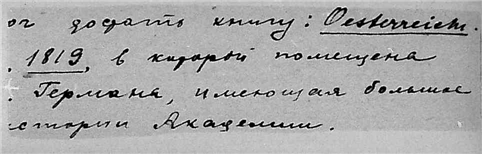 ог достать книгу: Oesterreich.
. 1819, в которой помещена
. Германа, имеющая большое
стории Академии.